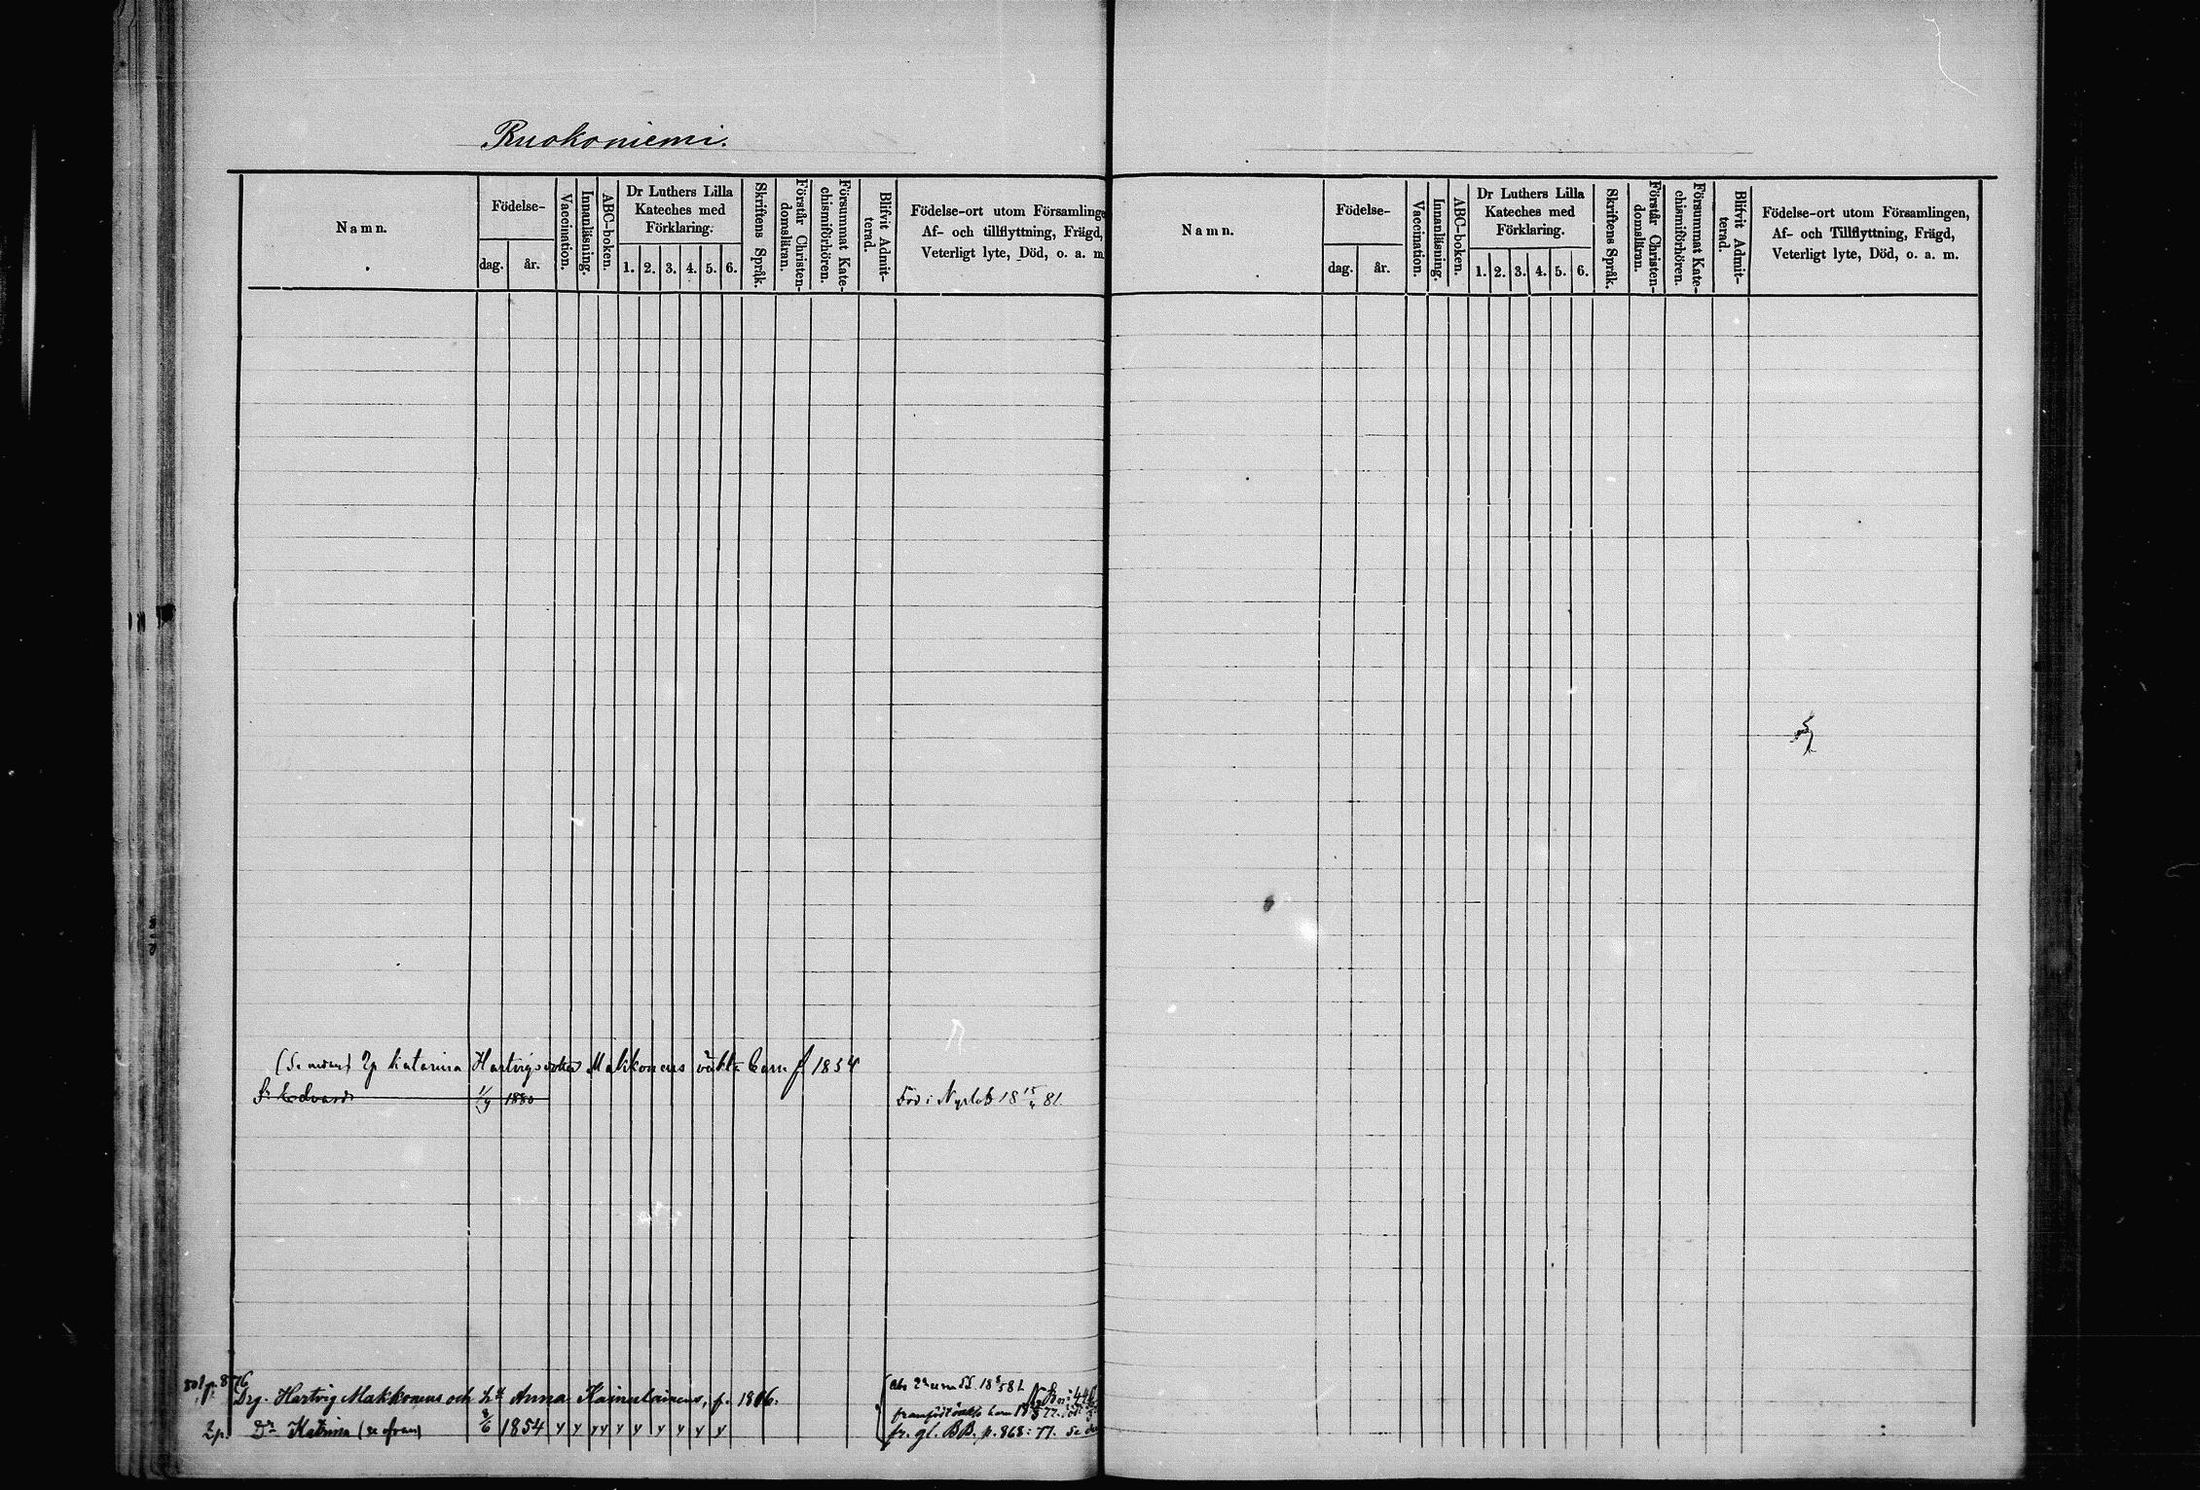 Ruokoniemi.
Namn.
Födelse-
dag.
år.
Vaccination.
Innanläsning.
ABC-boken.
Dr Luthers Lilla
Kateches med
Förklaring.
1. 2. 3. 4. 5. 6.
Skriftens Språk.
Förstår Christen-
domsläran.
Försummat Kate-
chismiförhören.
Blifvit Admit-
terad.
Födelse-ort utom Församlinge
Af- och tillflyttning, Frägd,
Veterligt lyte, Död, o. a. m
(Se nedan) 2p Katarina Hartvigsdotter Makkonens oäkta barn f 1854
S. Edvard 1/9 1880 Död i Nyslott 18 15/4 81.
801 p. 876
Drg. Hartvig Makkonens och h. Anna Kainulainens, f. 1816.
2p. Dr Katrina (se ofvan) 8/6 1854 y y yy y y y y y y fr. gl. BB. p. 868: 77. Se
Namn.
Födelse-
dag.
år.
Vaccination.
Innanläsning.
ABC-boken.
Dr Luthers Lilla
Kateches med
Förklaring.
1. 2. 3. 4. 5. 6.
Skriftens Språk.
Förstår Christen-
domsläran.
Försummat Kate-
chismiförhören.
Blifvit Admit-
terad.
Födelse-ort utom Församlingen,
Af- och Tillflyttning, Frägd,
Veterligt lyte, Död, o. a. m.